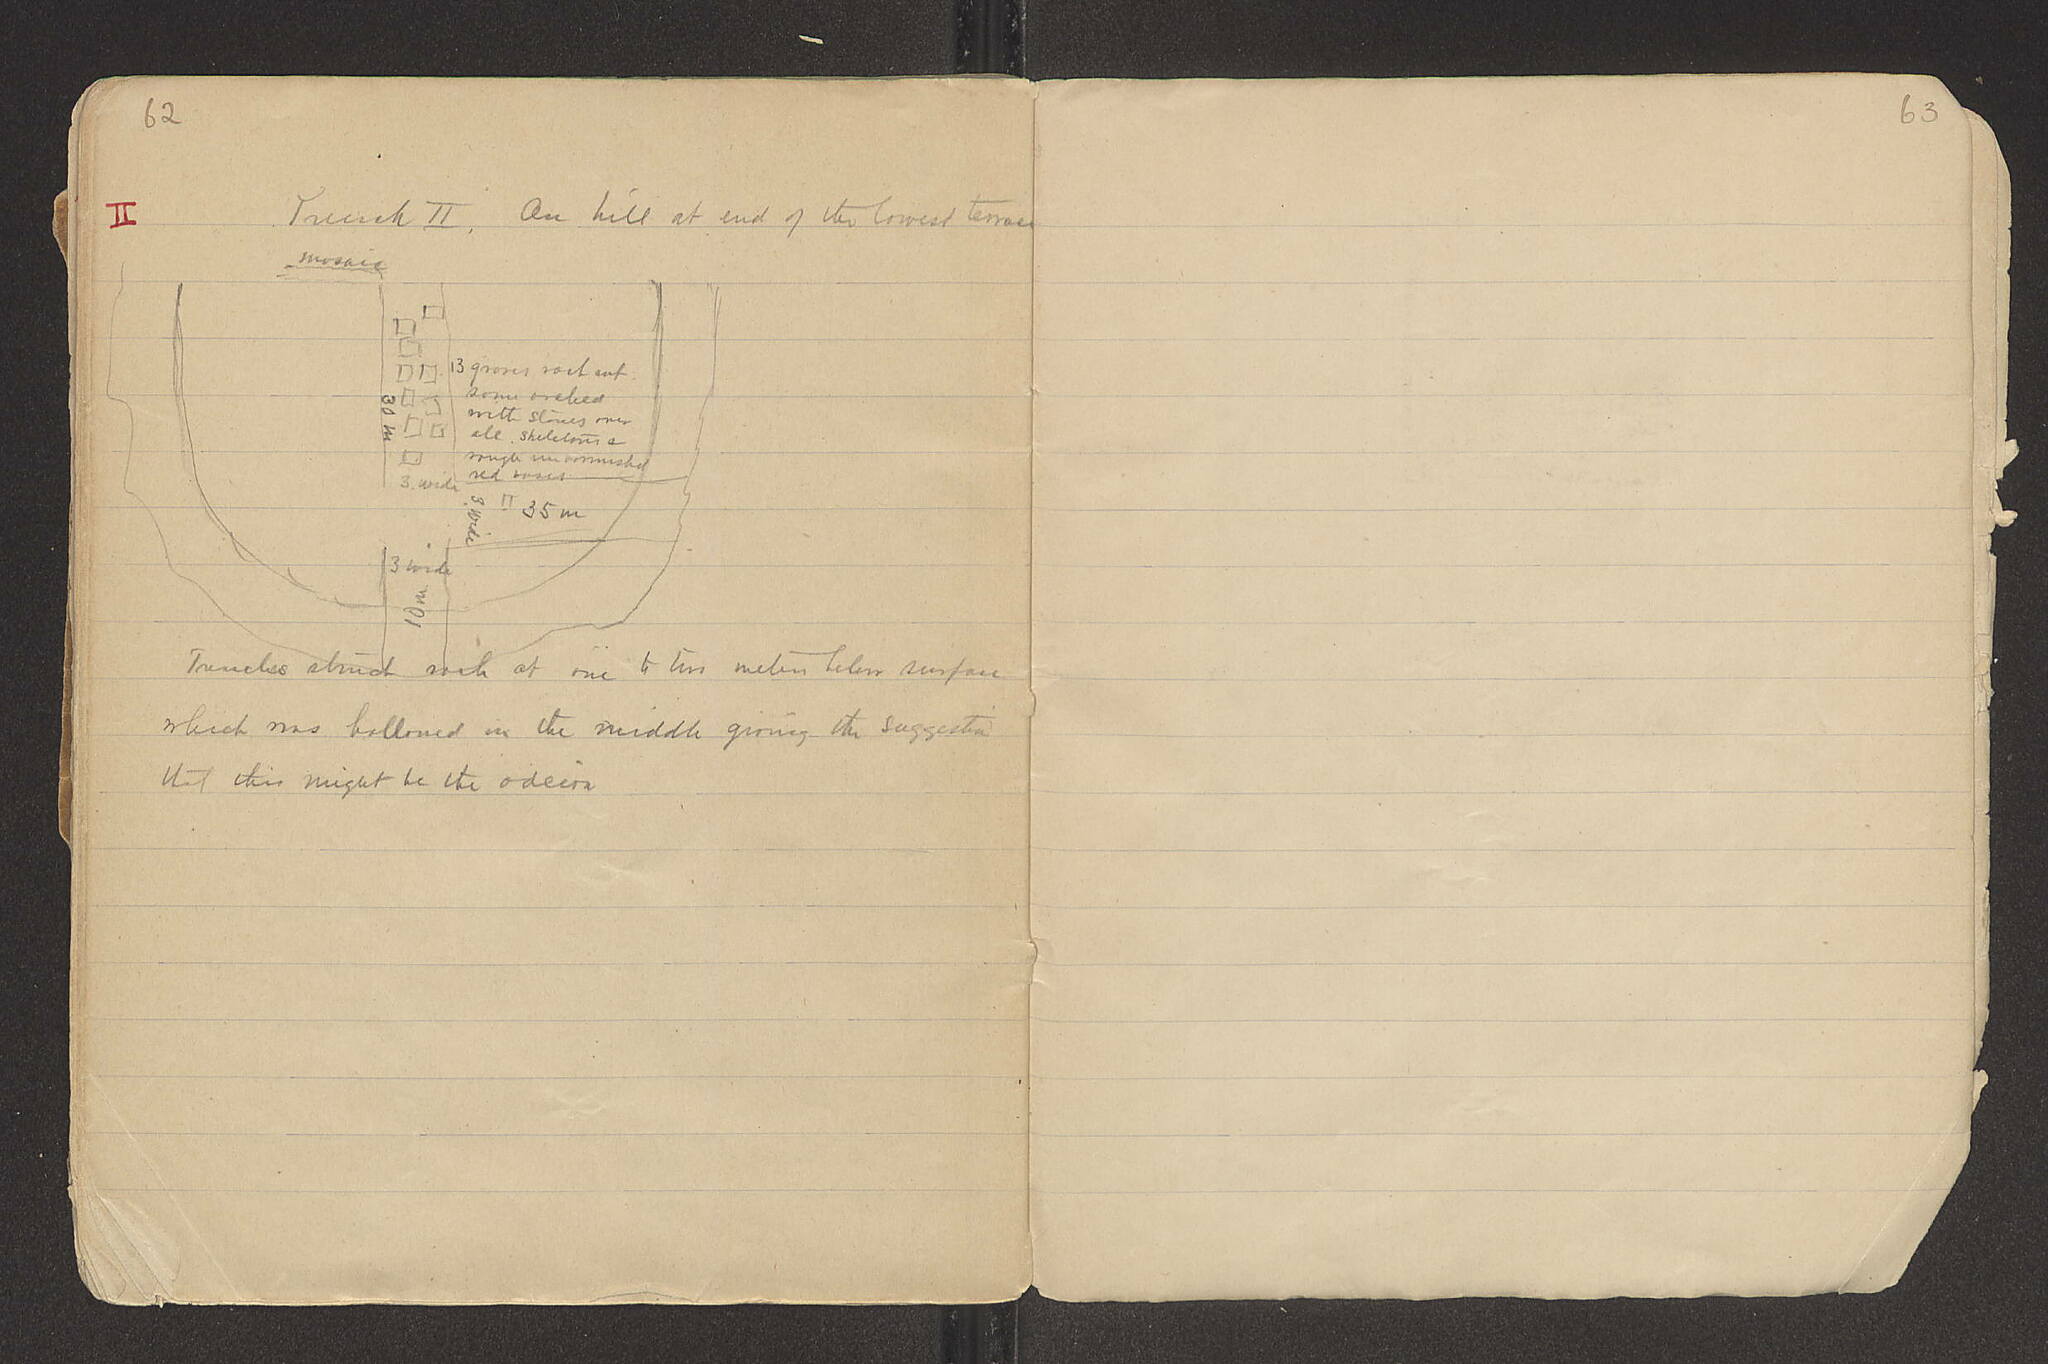 62
63
II
Trench II. On hill at end of the lowest terrace
mosaic
13 graves rock cut.
some arched
with stones over
all. skeletons &
rough unvarnished
red vases
30 m
3. wide
3. wide
35 m
3 wide
10 m
Trenches struck rock at one to two meters below surface
which was hollowed in the middle giving the suggestion
that this might be the odeion